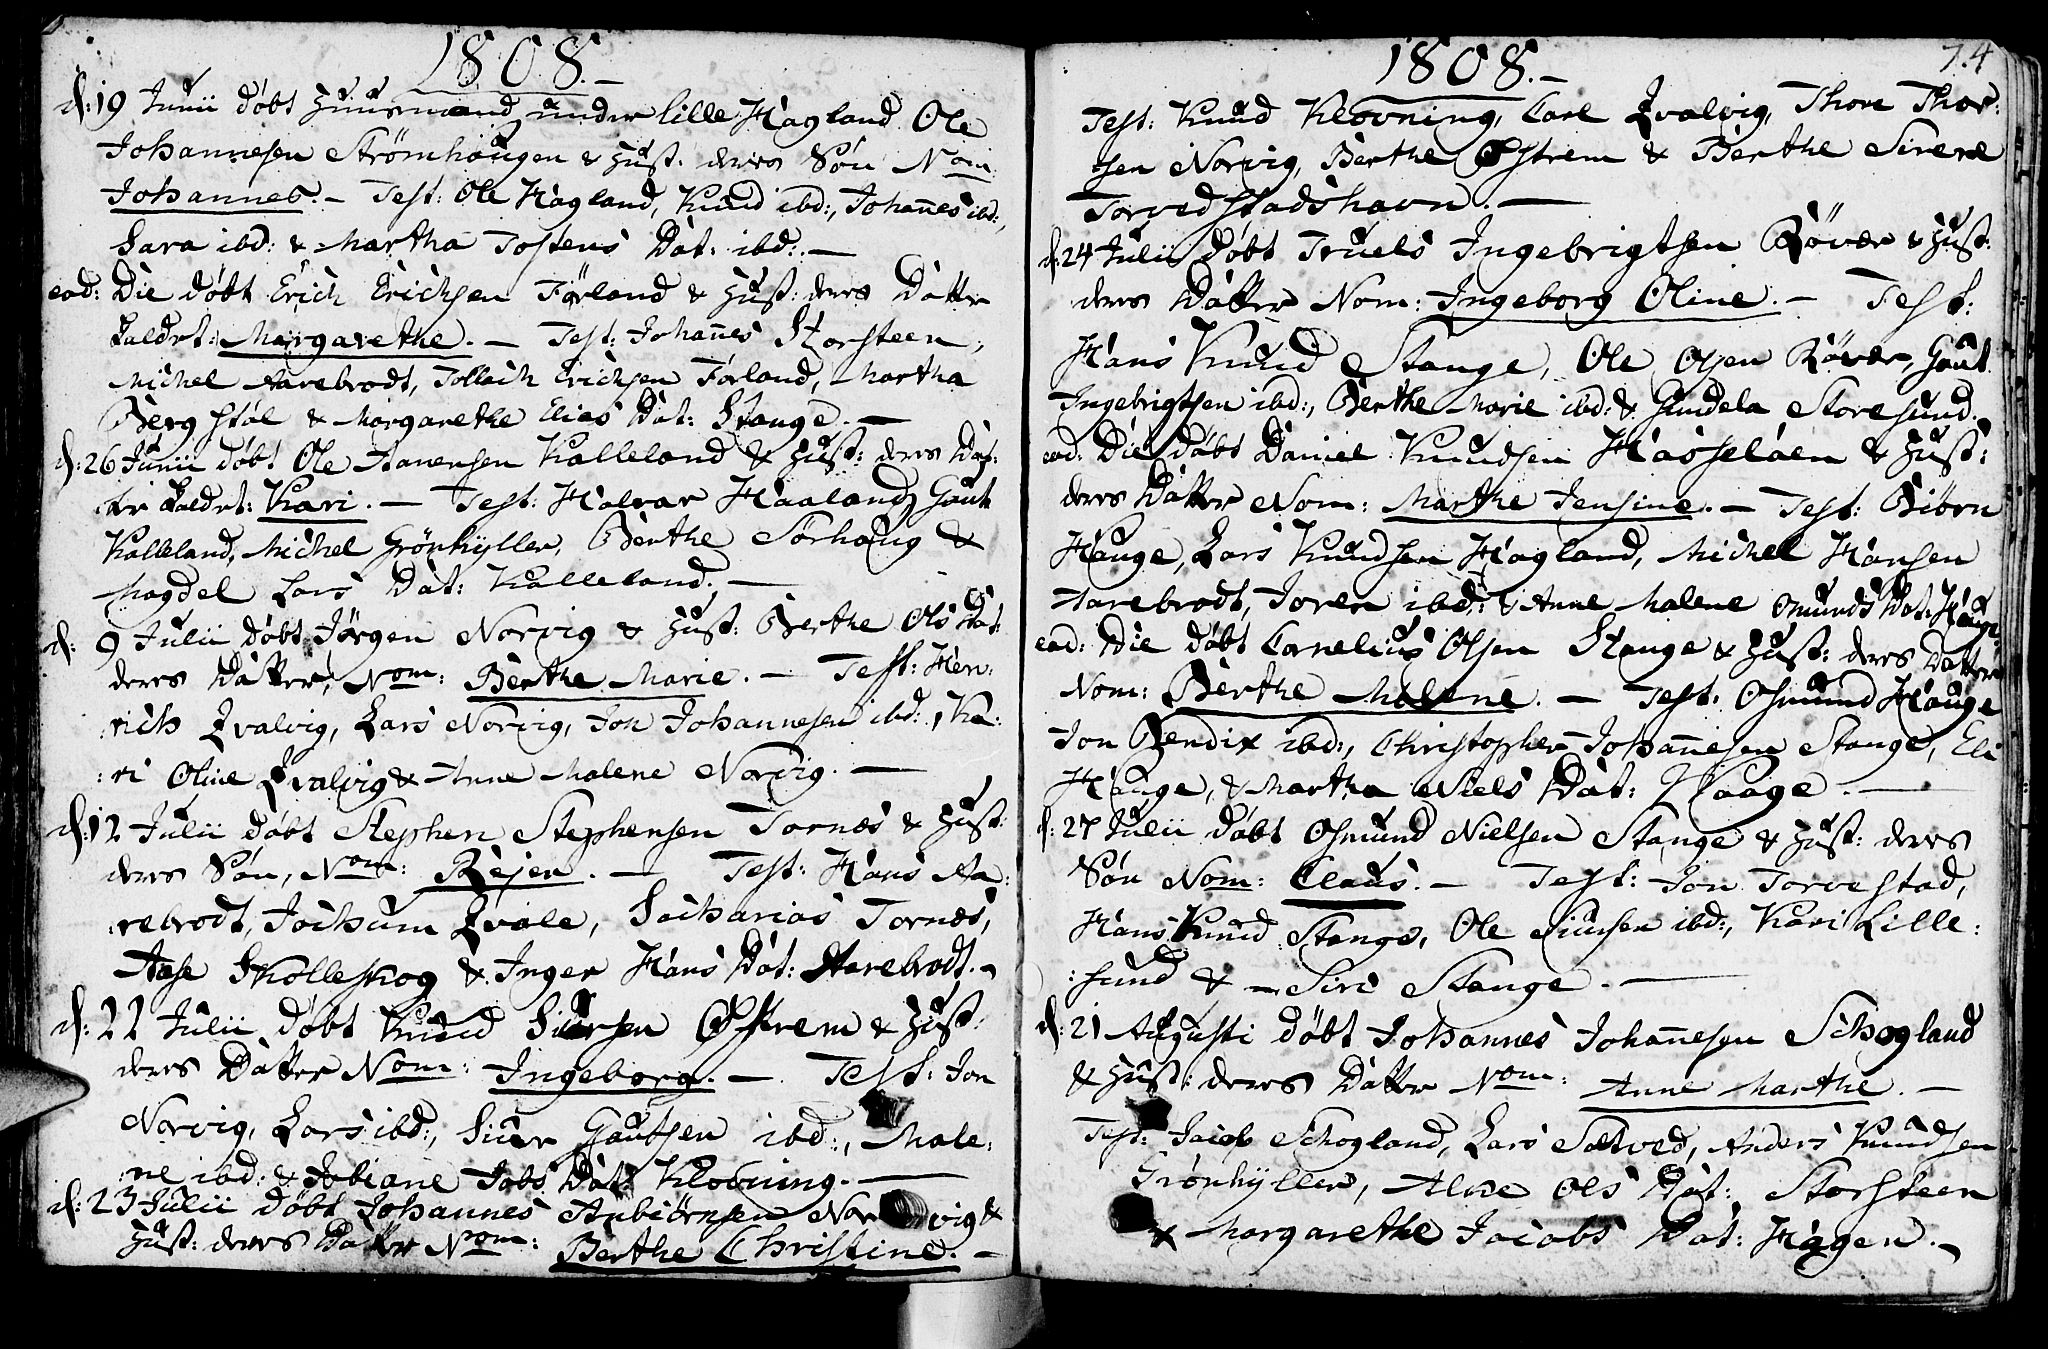 1808.-
d: 19 Junii døbt Huusmand under lille Hagland Ole
Johannesen Strömhaugen & Hust: deres Sön Nom:
Johannes. - Test: Ole Hagland, Knud ibd:, Johannes ibd:,
Sara ibd: & Martha Tostens Dat: ibd: -
eod: Die døbt Erich Erichsen Förland & Hust: deres Datter
kaldet: Margarethe. - Test: Johannes Storsteen,
Michel Aarebrodt, Tollach Erichsen Förland, Martha
Bergstøl & Margarethe Elias Dat: Stange. -
d: 26 Junii døbt Ole Aanensen Kalleland & Hust: deres Dat:
ter kaldet: Kari. - Test: Halvar Haaland, Gaut
Kalleland, Michel Grönhyller, Berthe Sörhaug &
Magdel Lars Dat: Kalleland. -
d: 9 Julii døbt Jörgen Norvig & Hust: Berthe Ols Dat:
deres Datter, Nom: Berthe Marie. - Test: Hen:
:rich Qvalvig, Lars Norvig, Jon Johannesen ibd:, Ka:
:ri Oline Qvalvig & Anne Malene Norvig. -
d: 12 Julii døbt Stephen Stephensen Tornes & Hust:
deres Sön, Nom: Rejer. - Test: Hans Aa:
:rebrodt, Jochum Qvale, Sacharias Tornes,
Aase Skolleskog & Inger Hans Dat: Aarebrodt. -
d: 22 Julii døbt Knud Siursen Østrem & Hust:
deres Datter Nom: Ingeborg. - Test: Jon
Norvig, Lars ibd:, Siur Gautsen ibd:, Male:
:ne ibd: & Jobiane Jobs Dat: Klovning. -
d: 23 Julii døbt Johannes Anbiörnsen Norvig &
Hust: deres Datter Nom: Berthe Christine. -
1808.- 74
Test: Knud Klovning, Carl Qvalvig, Thore Thor:
sen Norvig, Berthe Østrem & Berthe Sirene
Torvedstadshavn. -
d: 24 Julii døbt Truels Ingebrigtsen Röver & Hust:
deres Datter Nom: Ingeborg Oline. - Test:
Hans Knud Stange, Ole Olsen Röver, Gaut
Ingebrigtsen ibd:, Berthe Marie ibd: & Gundela Storesund.
eod: Die døbt Daniel Knudsen Hasseløen & Hust:
deres Datter Nom: Marthe Jensine. - Test: Biörn
Hauge, Lars Knudsen Hagland, Michel Hansen
Aarebrodt, Joren ibd: & Anne Malene Omunds Dat: Hauge.
eod: Die døbt Cornelius Olsen Stange & Hust: deres Datter
Nom: Berthe Malene. - Test: Osmund Hauge
Jon Bendix ibd:, Christopher Johannesen Stange, Eli
Hauge, & Martha Niels Dat: Waage. -
d: 27 Julii døbt Osmund Nielsen Stange & Hust: deres
Sön Nom: Claus. - Test: Jon Torvestad,
Hans Knud Stange, Ole Siursen ibd:, Kari Lille:
:sund & Siri Stange. -
d: 21 Augusti døbt Johannes Johannesen Schogland
& Hust: deres Datter Nom: Anne Marthe. -
Test: Jacob Schogland, Lars Sætved, Anders Knudsen
Grönhyller, Alne Ols Dat: Storsteen
& Margarethe Jacobs Dat: Hagen. -